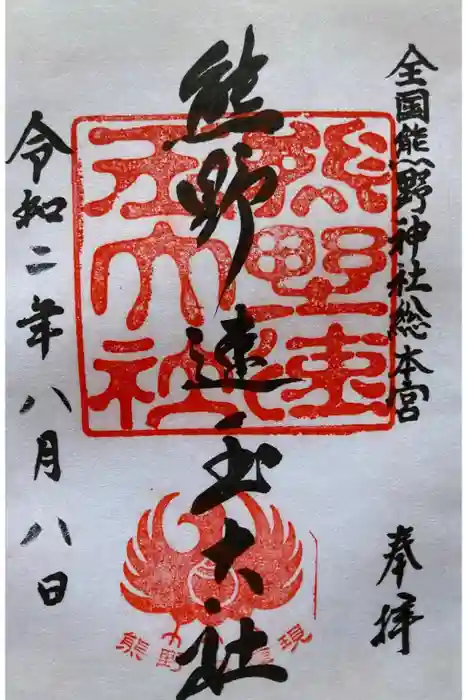 全国熊野神社総本宮
奉拝
熊野速玉大社
令和二年八月八日
熊野速玉大社
熊野権現